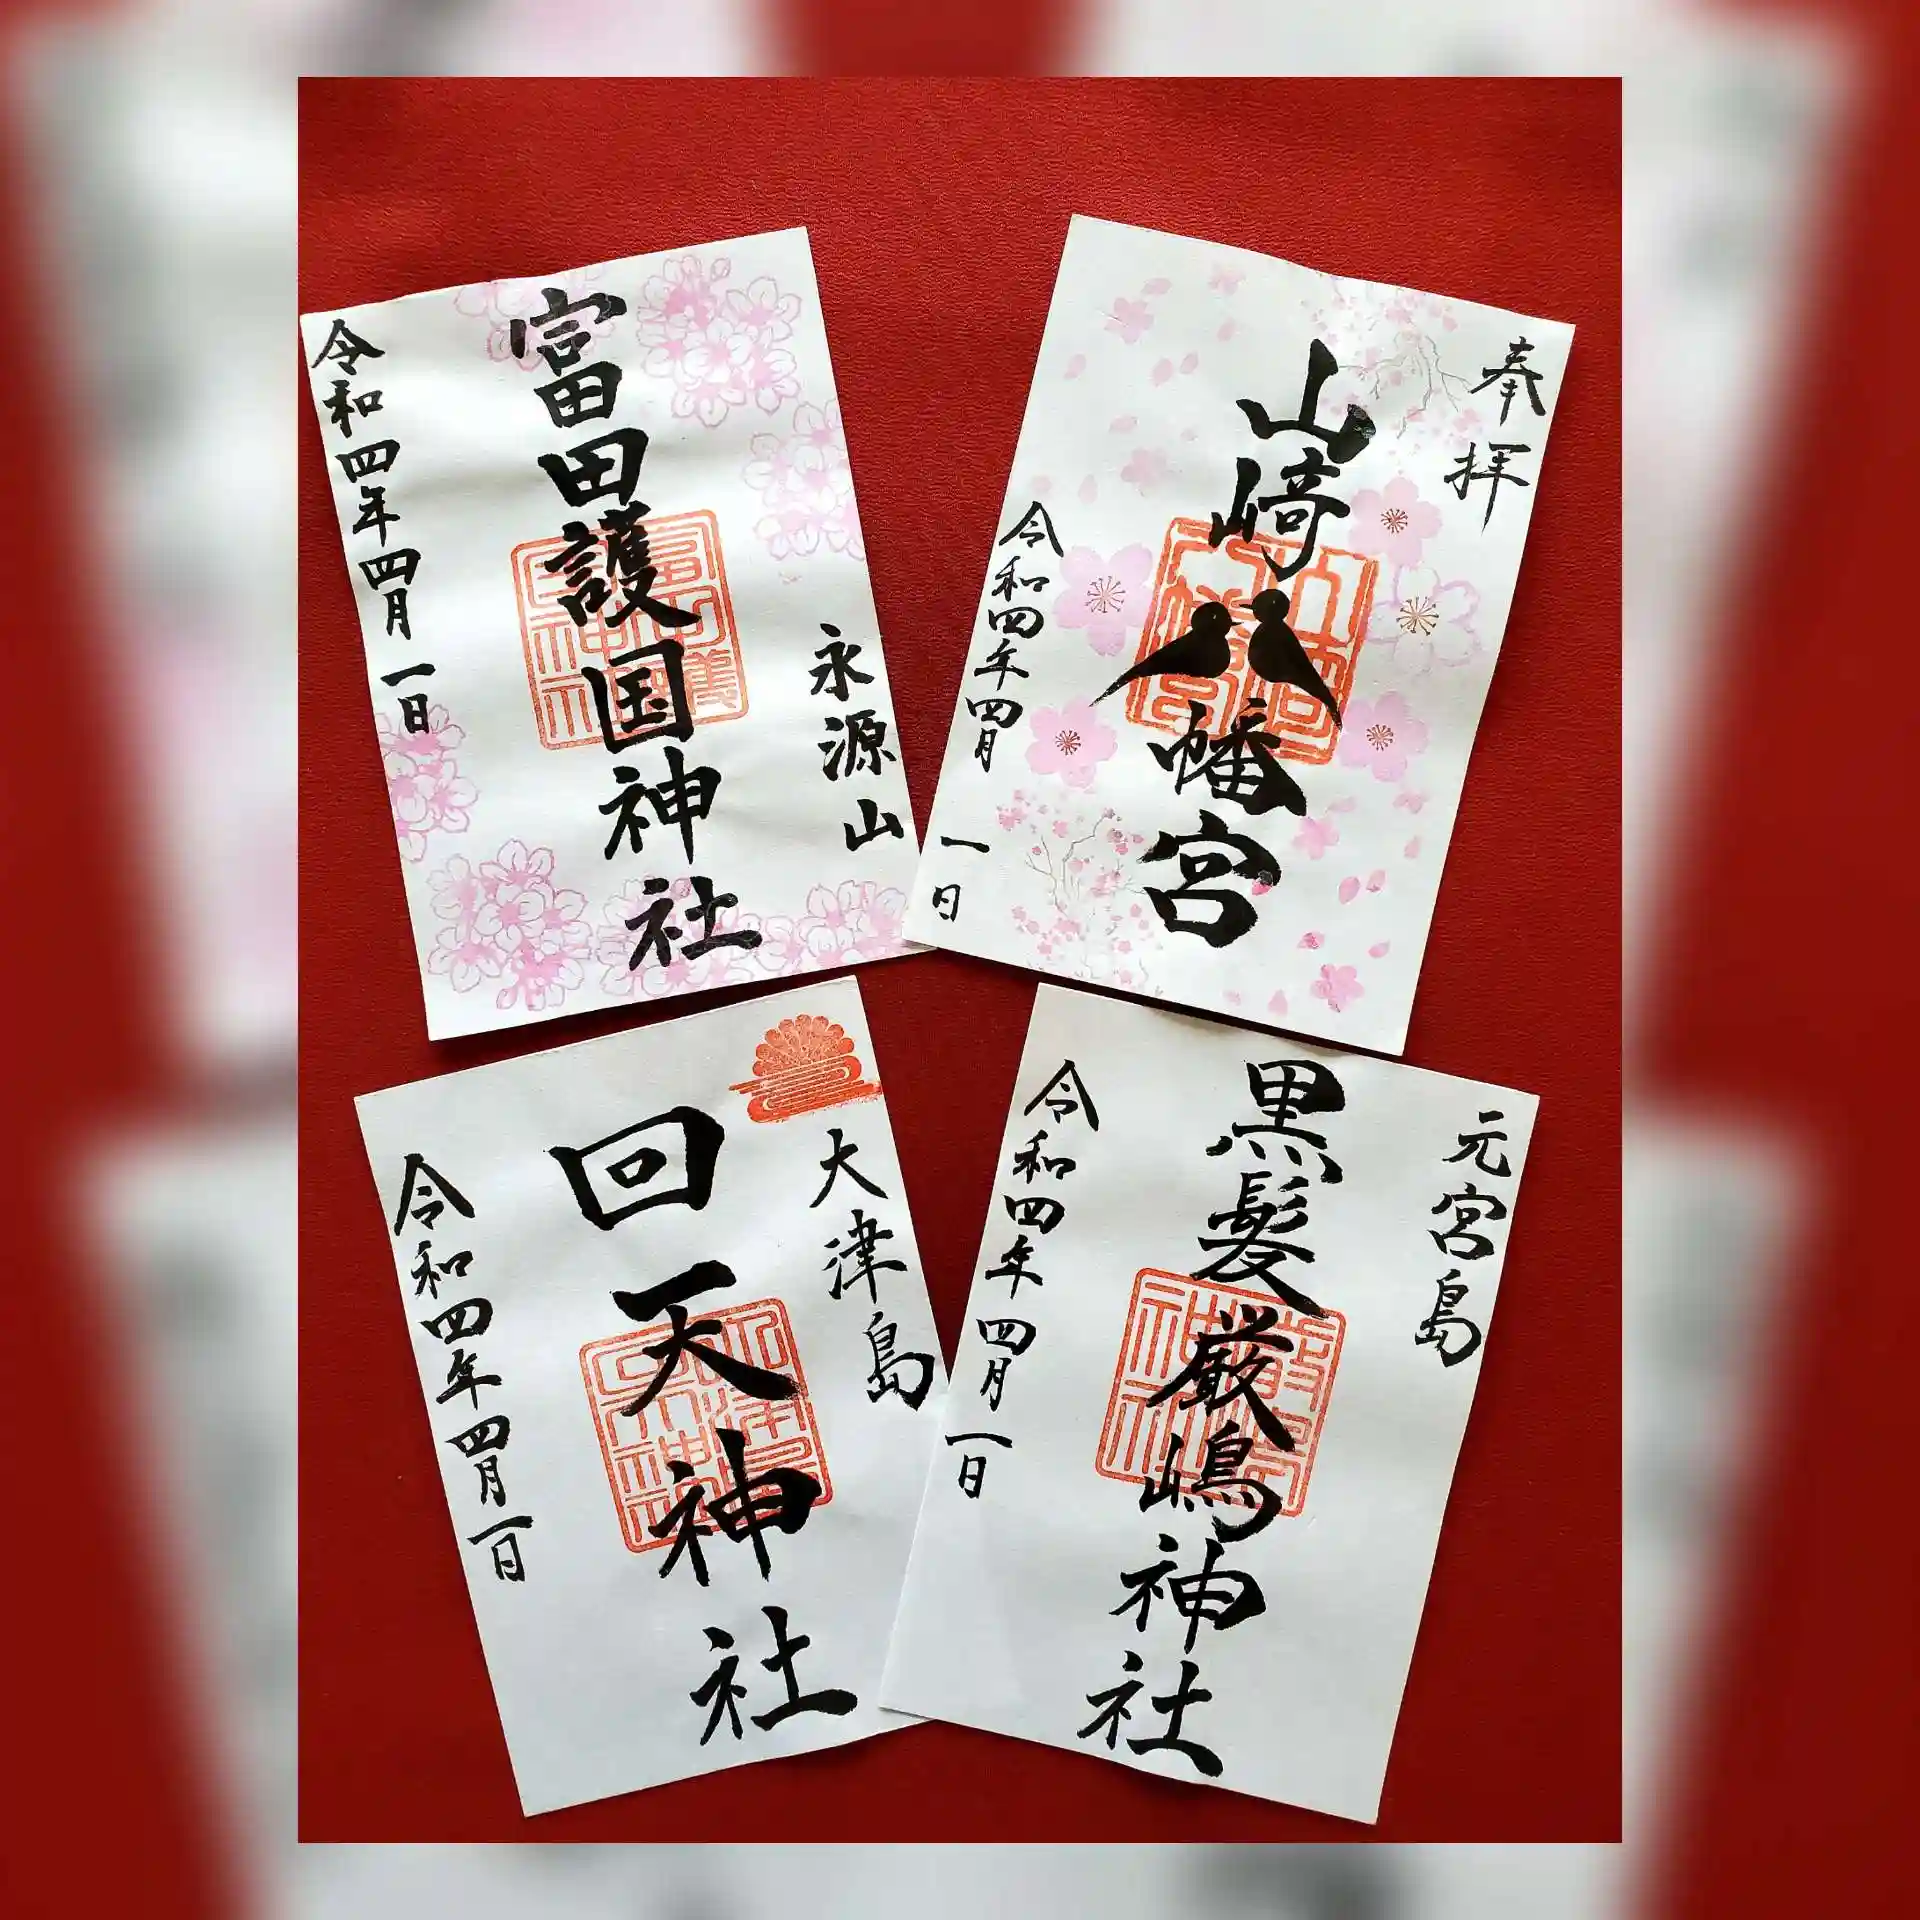 奉拝
山崎八幡宮
令和四年四月一日
永源山
富田護国神社
令和四年四月一日
元宮島
黒髪厳嶋神社
令和四年四月一日
大津島
回天神社
令和四年四月一日